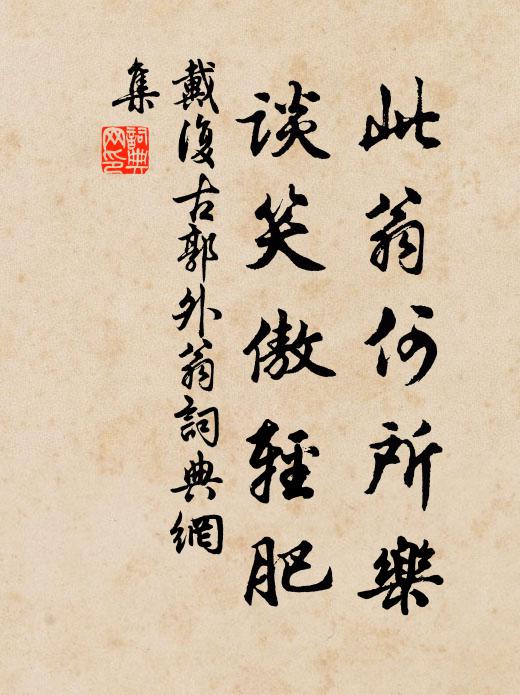 此翁何所樂
談笑傲輕肥
戴復古郭外翁詞典網
集
詞典
网印